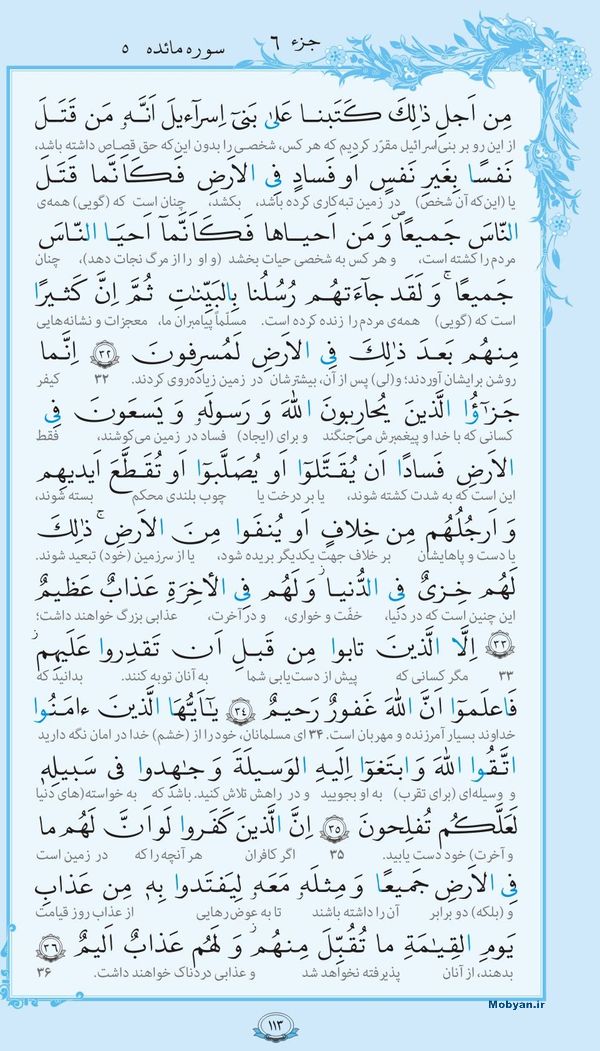 جزء ۶
سوره مائده ۵
مِن اَجلِ ذٰلِكَ كَتَبنا عَلىٰ بَنیٓ اِسرآءیلَ اَنَّهٗ مَن قَتَلَ
از این رو بر بنی‌اسرائیل مقرّر کردیم که هر کس، شخصی را بدون این‌که حق قصاص داشته باشد،
نَفسًا بِغَیرِ نَفسٍ اَو فَسادٍ فِی الاَرضِ فَكَاَنَّما قَتَلَ
یا (این‌که آن شخص) در زمین تبه‌کاری کرده باشد، بکشد، چنان است که (گویی) همه‌ی
النّاسَ جَمیعًا ۖ وَ مَن اَحیاها فَكَاَنَّمآ اَحیَا النّاسَ
مردم را کشته است، و هر کس به شخصی حیات بخشد (و او را از مرگ نجات دهد)، چنان
جَمیعًا ۚ وَ لَقَد جآءَتهُم رُسُلُنا بِالبَیِّنٰتِ ثُمَّ اِنَّ كَثیرًا
است که (گویی) همه‌ی مردم را زنده کرده است. مسلّماً پیامبران ما، معجزات و نشانه‌هایی
مِنهُم بَعدَ ذٰلِكَ فِی الاَرضِ لَمُسرِفونَ ﴿۳۲﴾ اِنَّما
روشن برایشان آوردند؛ و(لی) پس از آن، بیشترشان در زمین زیاده‌روی کردند. ۳۲ کیفر
جَزٰٓؤُا الَّذینَ یُحارِبونَ اللهَ وَ رَسولَهٗ وَ یَسعَونَ فِی
کسانی که با خدا و پیغمبرش می‌جنگند و برای (ایجاد) فساد در زمین می‌کوشند، فقط
الاَرضِ فَسادًا اَن یُقَتَّلوٓا اَو یُصَلَّبوٓا اَو تُقَطَّعَ اَیدیهِم
این است که به شدت کشته شوند، یا بر درخت یا چوب بلندی محکم بسته شوند،
وَ اَرجُلُهُم مِن خِلافٍ اَو یُنفَوا مِنَ الاَرضِ ۚ ذٰلِكَ
یا دست و پاهایشان بر خلاف جهت یکدیگر بریده شود، یا از سرزمین (خود) تبعید شوند.
لَهُم خِزیٌ فِی الدُّنیا ۖ وَ لَهُم فِی الأخِرَةِ عَذابٌ عَظیمٌ
این چنین است که در دنیا، خفّت و خواری، و در آخرت، عذابی بزرگ خواهند داشت؛
﴿۳۳﴾ اِلَّا الَّذینَ تابوا مِن قَبلِ اَن تَقدِروا عَلَیهِم ۖ
۳۳ مگر کسانی که پیش از دست‌یابی شما به آنان توبه کنند. بدانید که
فَاعلَموٓا اَنَّ اللهَ غَفورٌ رَحیمٌ ﴿۳۴﴾ یٰٓاَیُّهَا الَّذینَ ءامَنُوا
خداوند بسیار آمرزنده و مهربان است. ۳۴ ای مسلمانان، خود را از (خشم) خدا در امان نگه دارید
اتَّقُوا اللهَ وَ ابتَغوٓا اِلَیهِ الوَسیلَةَ وَ جٰهِدوا فی سَبیلِهٖ
و وسیله‌ای (برای تقرب) به او بجویید و در راهش تلاش کنید. باشد که به خواسته(های دنیا
لَعَلَّكُم تُفلِحونَ ﴿۳۵﴾ اِنَّ الَّذینَ كَفَروا لَو اَنَّ لَهُم ما
و آخرت) خود دست یابید. ۳۵ اگر کافران هر آنچه را که در زمین است
فِی الاَرضِ جَمیعًا وَ مِثلَهٗ مَعَهٗ لِیَفتَدوا بِهٖ مِن عَذابِ
و (بلکه) دو برابر آن را داشته باشند تا به عوض رهایی از عذاب روز قیامت
یَومِ القِیٰمَةِ ما تُقُبِّلَ مِنهُم ۖ وَ لَهُم عَذابٌ اَلیمٌ ﴿۳۶﴾
بدهند، از آنان پذیرفته نخواهد شد و عذابی دردناک خواهند داشت. ۳۶
۱۱۳
Mobyan.ir